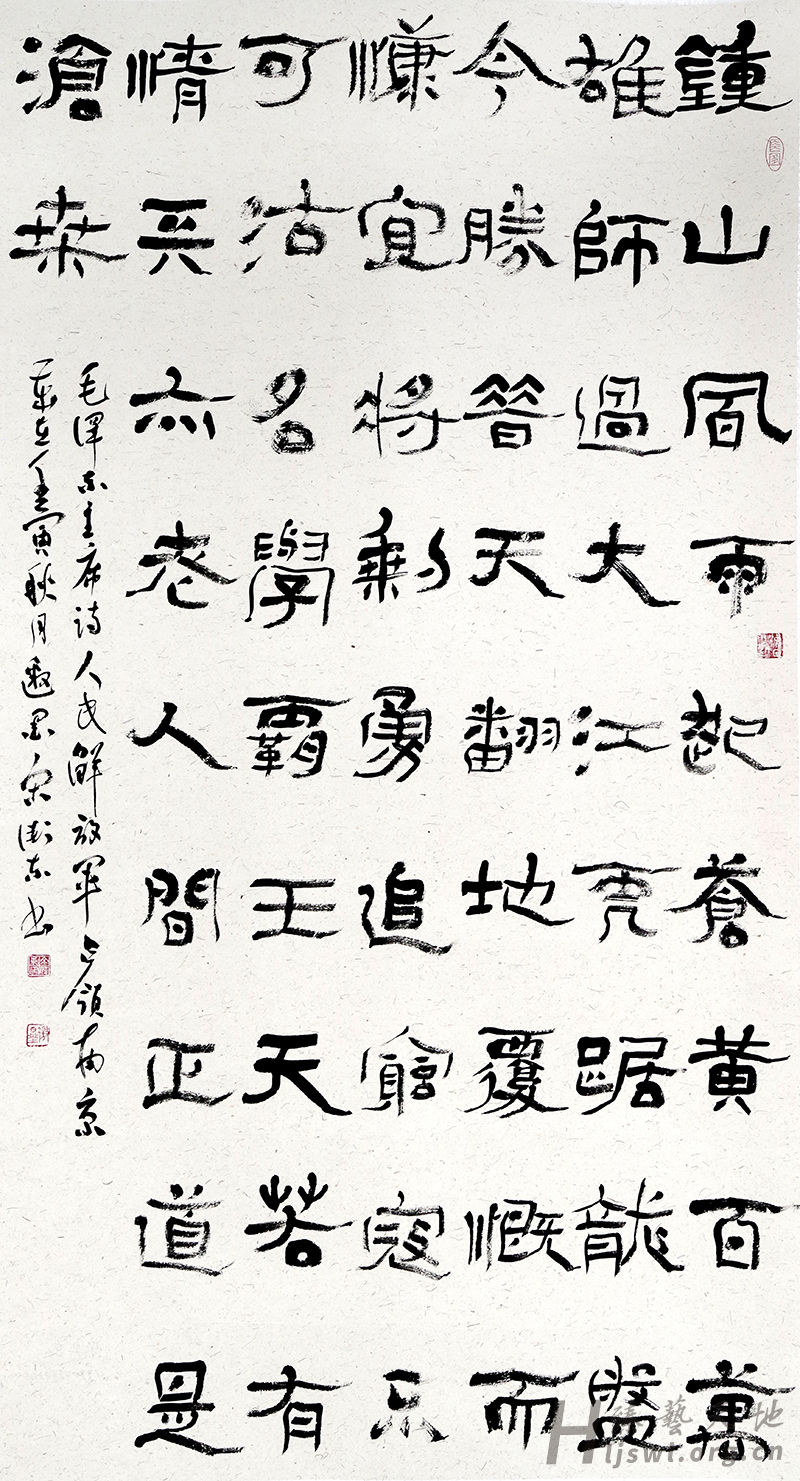 鍾山風雨起蒼黃百萬
雄師過大江虎踞龍盤
今勝昔天翻地覆慨而
慷宜將剩勇追窮寇不
可沽名學霸王天若有
情天亦老人間正道是
滄桑
毛澤东主席诗人民解放軍占領南京
壬寅秋月 宋衛东书
H 書藝天地
ljswt.org.cn